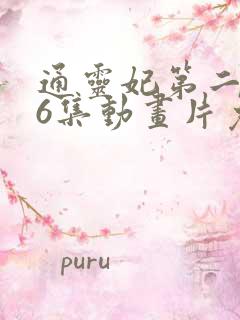 通靈妃第二
6集動畫片
puru